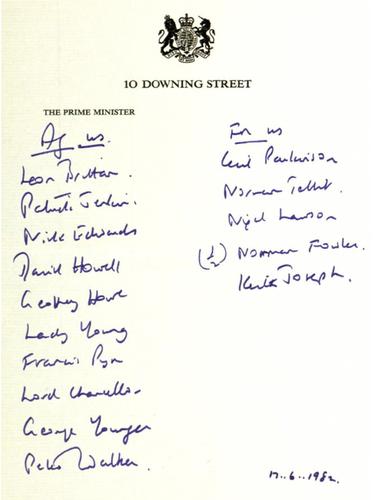 10 DOWNING STREET
THE PRIME MINISTER
Ag us.
Leon Brittan.
Patrick Jenkin.
Nick Edwards
David Howell
Geoffrey Howe
Lady Young
Francis Pym
Lord Chancellor
George Younger
Peter Walker.
For us
Cecil Parkinson
Norman Tebbit.
Nigel Lawson
(½) Norman Fowler.
Keith Joseph.
17.6.1982.